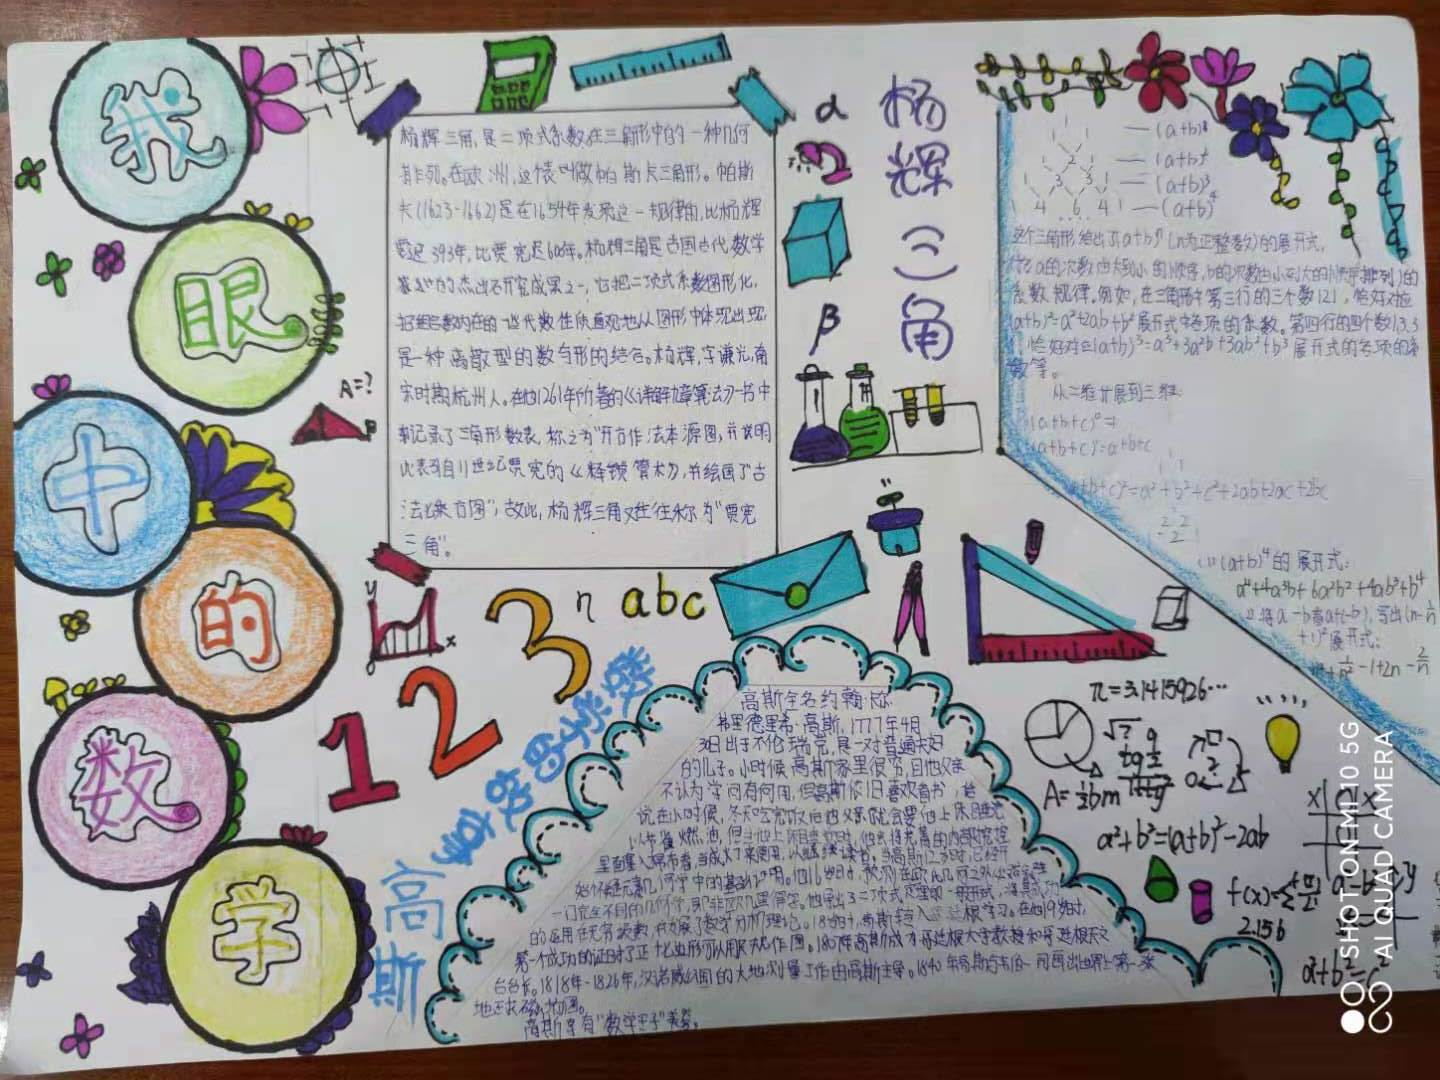 我
眼
中
的
数
学
杨辉三角，是二项式系数在三角形中的一种几何
排列。在欧洲，这个表叫做帕斯卡三角形。帕斯
卡(1623-1662)是在1654年发现这一规律的，比杨辉
要迟393年，比贾宪迟600年。杨辉三角是古国古代数学
的杰出研究成果之一，它把二项式系数图形化，
把组合数内在的一些代数性质直观地从图形中体现出现，
是一种离散型的数与形的结合。杨辉，字谦光，南
宋时期杭州人。在他1261年所著的《详解九章算法》一书中
记录了三角形数表，称之为"开方作法本源图，并说明
此表引自11世纪贾宪的《释锁算术》，并绘画了"古
法七乘方图"，故此，杨辉三角又往往称为"贾宪
三角"。
杨辉三角
α
β
A=?
B
y
x
1 2 3
η
abc
(a+b)²
(a+b)³
(a+b)⁴
1 4 6 4 1
这个三角形给出了(a+b)ⁿ(n为正整数)的展开式，
(按a的次数由大到小的顺序，b的次数由小到大的顺序排列)的
系数规律，例如，在三角形中第三行的三个数121，恰好对应
(a+b)²=a²+2ab+b²展开式中各项的系数。第四行的四个数1,3,3
恰好对应(a+b)³=a³+3a²b+3ab²+b³展开式的各项的系
数等。
从二维扩展到三维：
(a+b+c)⁰=
(a+b+c)¹=a+b+c
(a+b+c)²=a²+b²+c²+2ab+2ac+2bc
(1)(a+b)⁴的展开式：
a⁴+4a³b+6a²b²+4ab³+b⁴
展开式：
数学的故事
高斯
高斯全名约翰·
弗里德里希·高斯，1777年4月
30日出于不伦瑞克，是一对普通夫妇
的儿子。小时候高斯家里很穷，且他父亲
不认为学问有何用，但高斯依旧喜欢看书，
说在小时候，冬天吃完饭后他父亲就会要他上床睡觉
以节省燃油，但当他上床睡觉时，他会将芜菁的内部挖空
里面塞入棉布卷，当成灯来使用，以继续读书。当高斯12岁时，已经开
始怀疑元素几何学中的基础证明。
一门完全不同的几何学，即非欧几里得学。他导出了二项式定理的一般形式，
的运用在无穷级数，并发展了数学分析理论。18岁时，高斯转入 学习。在他19岁时，
第一个成功的证明了正十七边形可以用尺规作图。1807年高斯成为哥廷根大学教授和哥廷根天文
台台长。1818年-1826年，汉诺威公国的大地测量工作由高斯主导。1840年高斯与韦伯一同画出世界上第一张
地球磁场图。
高斯享有"数学王子"美誉。
π=3.1415926…
A=½bm
a²+b²=(a+b)²-2ab
f(x)=
2.156
a²+b²=c²
SHOT ON MI 10 5G
AI QUAD CAMERA